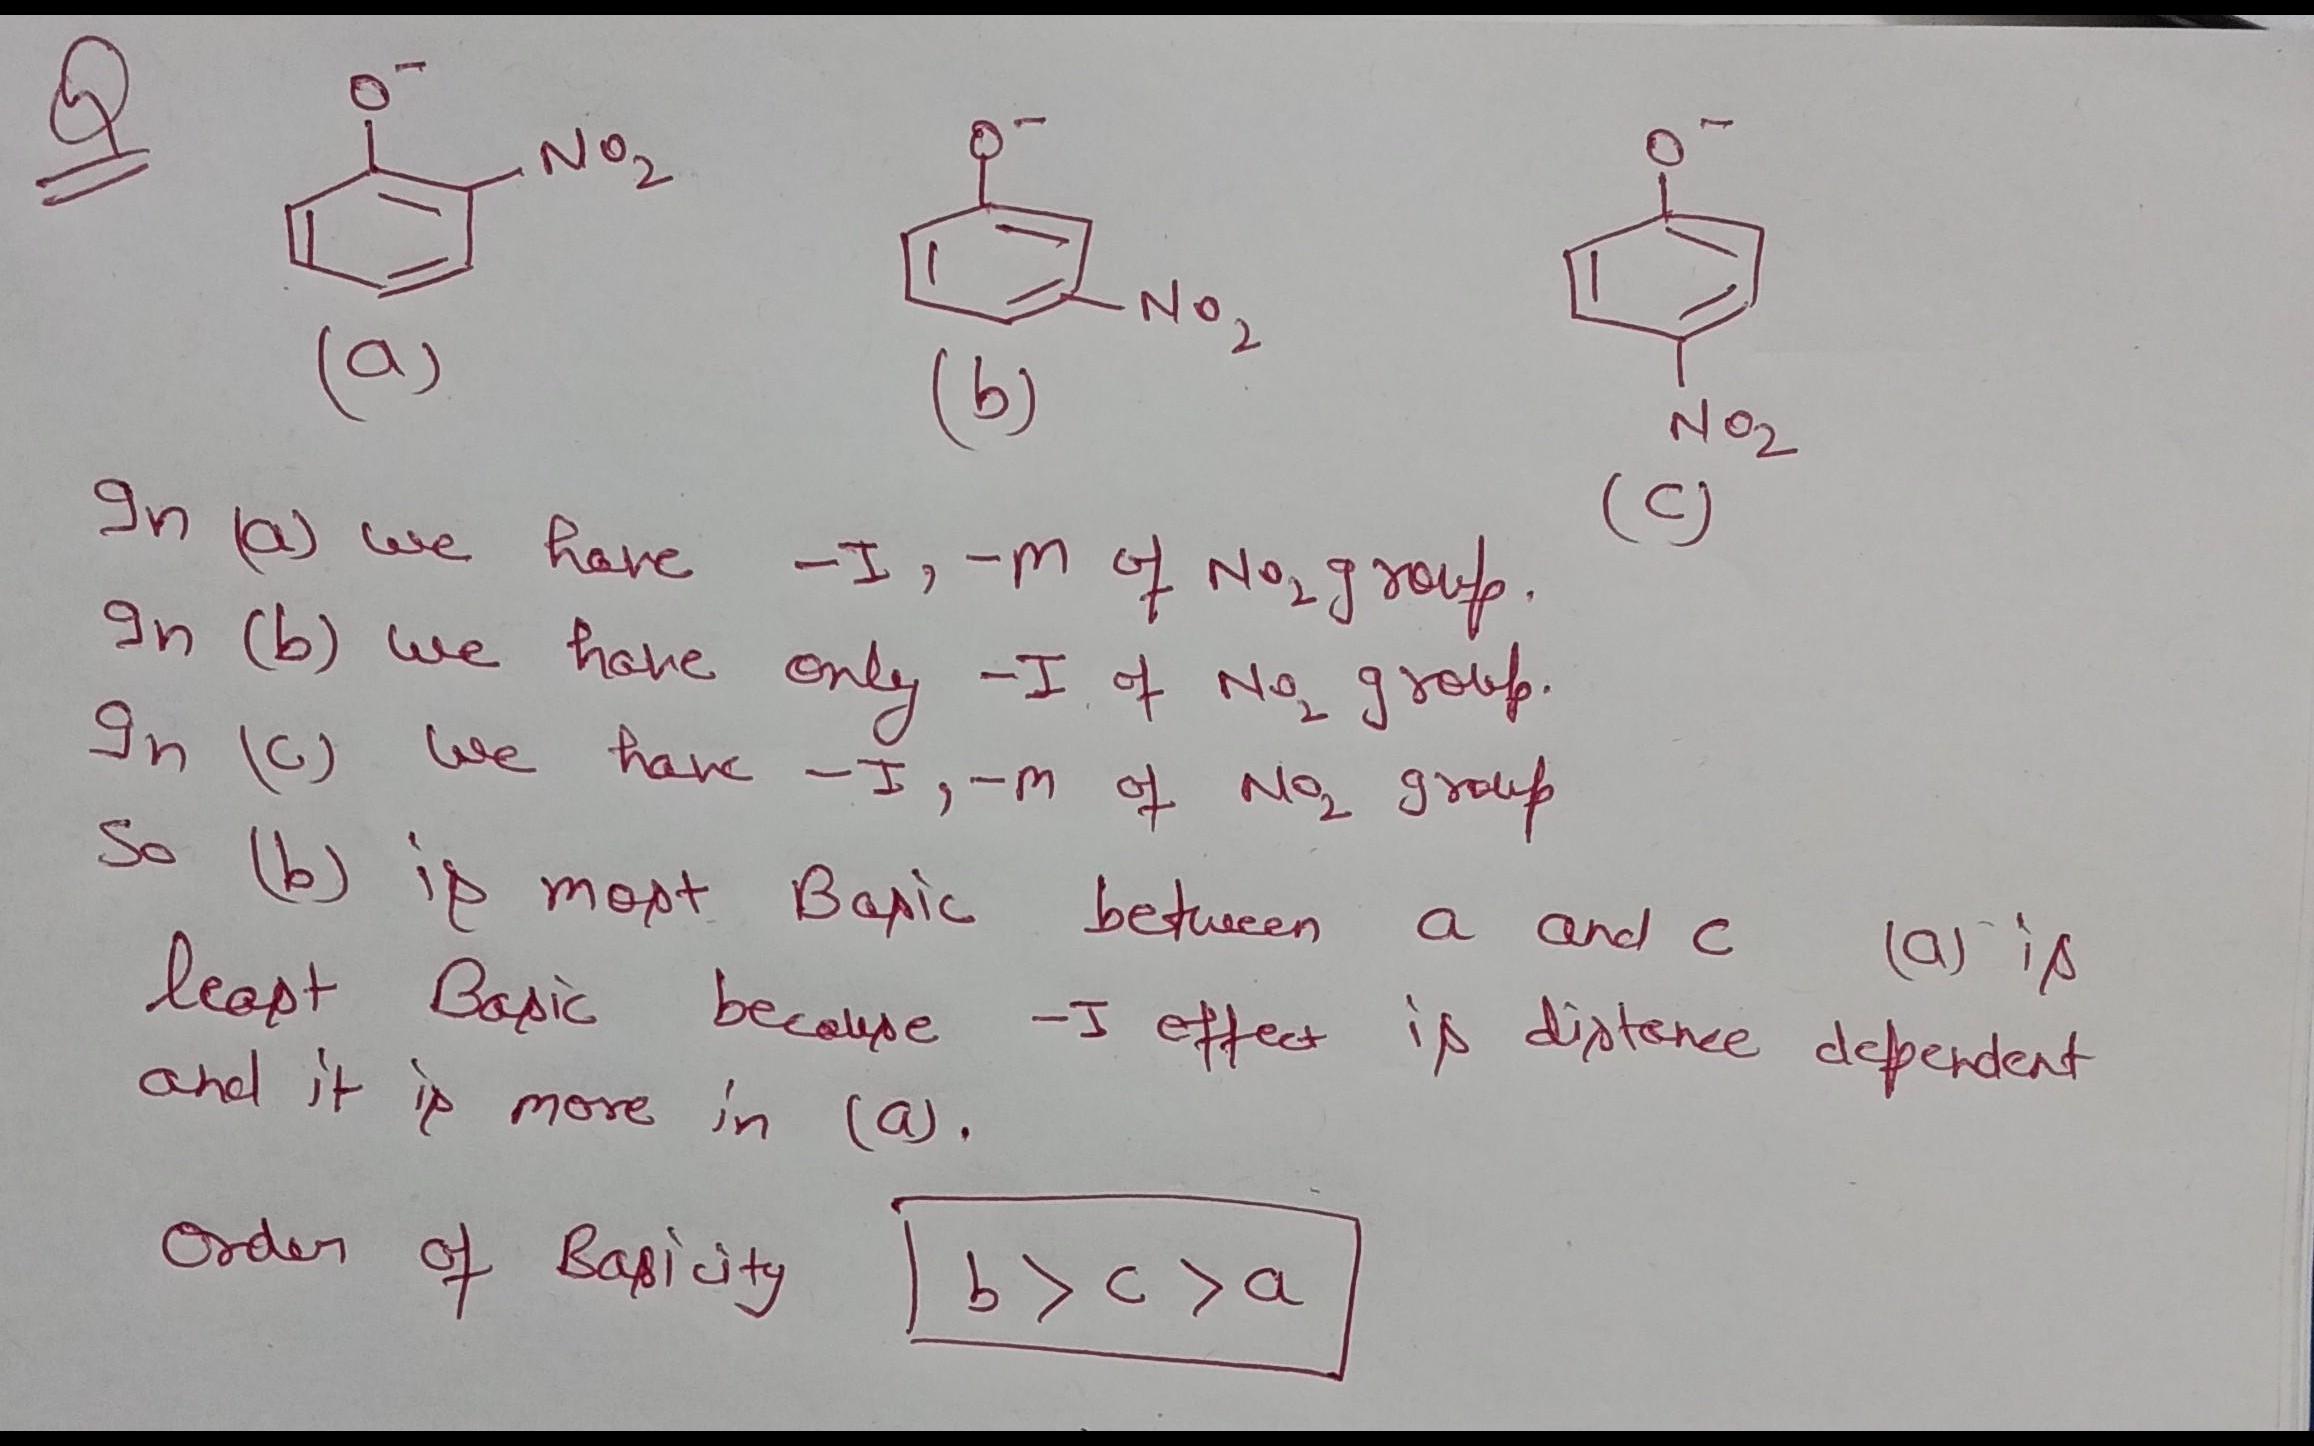 Q
O⁻ NO₂
O⁻ NO₂
O⁻ NO₂
(a) (b) (c)
In (a) we have -I, -m of NO₂ group.
In (b) we have only -I of NO₂ group.
In (c) we have -I, -m of NO₂ group
So (b) is most Basic between a and c (a) is
least Basic because -I effect is distance dependent
and it is more in (a).
Order of Basicity b > c > a